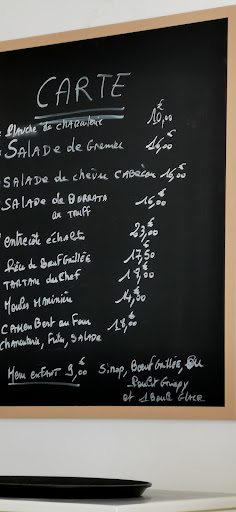 CARTE
Planche de charcuterie 10,00€
SALADE de Gramer 14,00€
SALADE de chèvre CABÉCOU 16,00€
SALADE de BURRATA 16,00€
au truff
entrecôte échalote 23,00€
Pièce de Bœuf Grillée 17,50€
TARTARE du Chef 18,00€
Moules Marinière 14,00€
CAMEMBERT au Four 18,00€
charcuterie, Frites, SALADE
Menu ENFANT 9,00€ Sirop, Bœuf Grillée, ou
Poulet Crispy
et 1 Boule GLACE